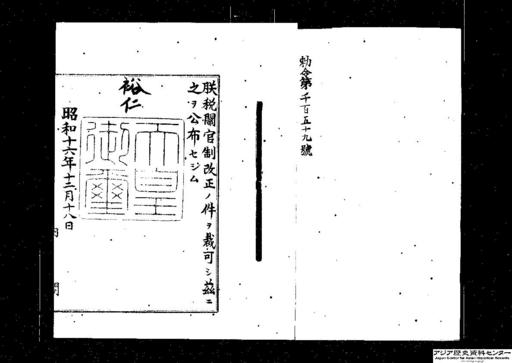 勅令第千百五十九號
朕税關官制改正ノ件ヲ裁可シ茲ニ
之ヲ公布セシム
裕仁
天皇
御璽
昭和十六年十二月十八日
アジア歴史資料センター
Japan Center for Asian Historical Records